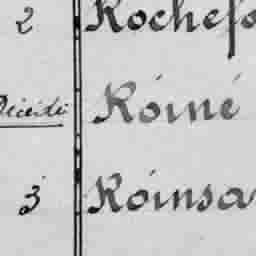 2 Rochefo
Décédé Róiné
3 Róinsa